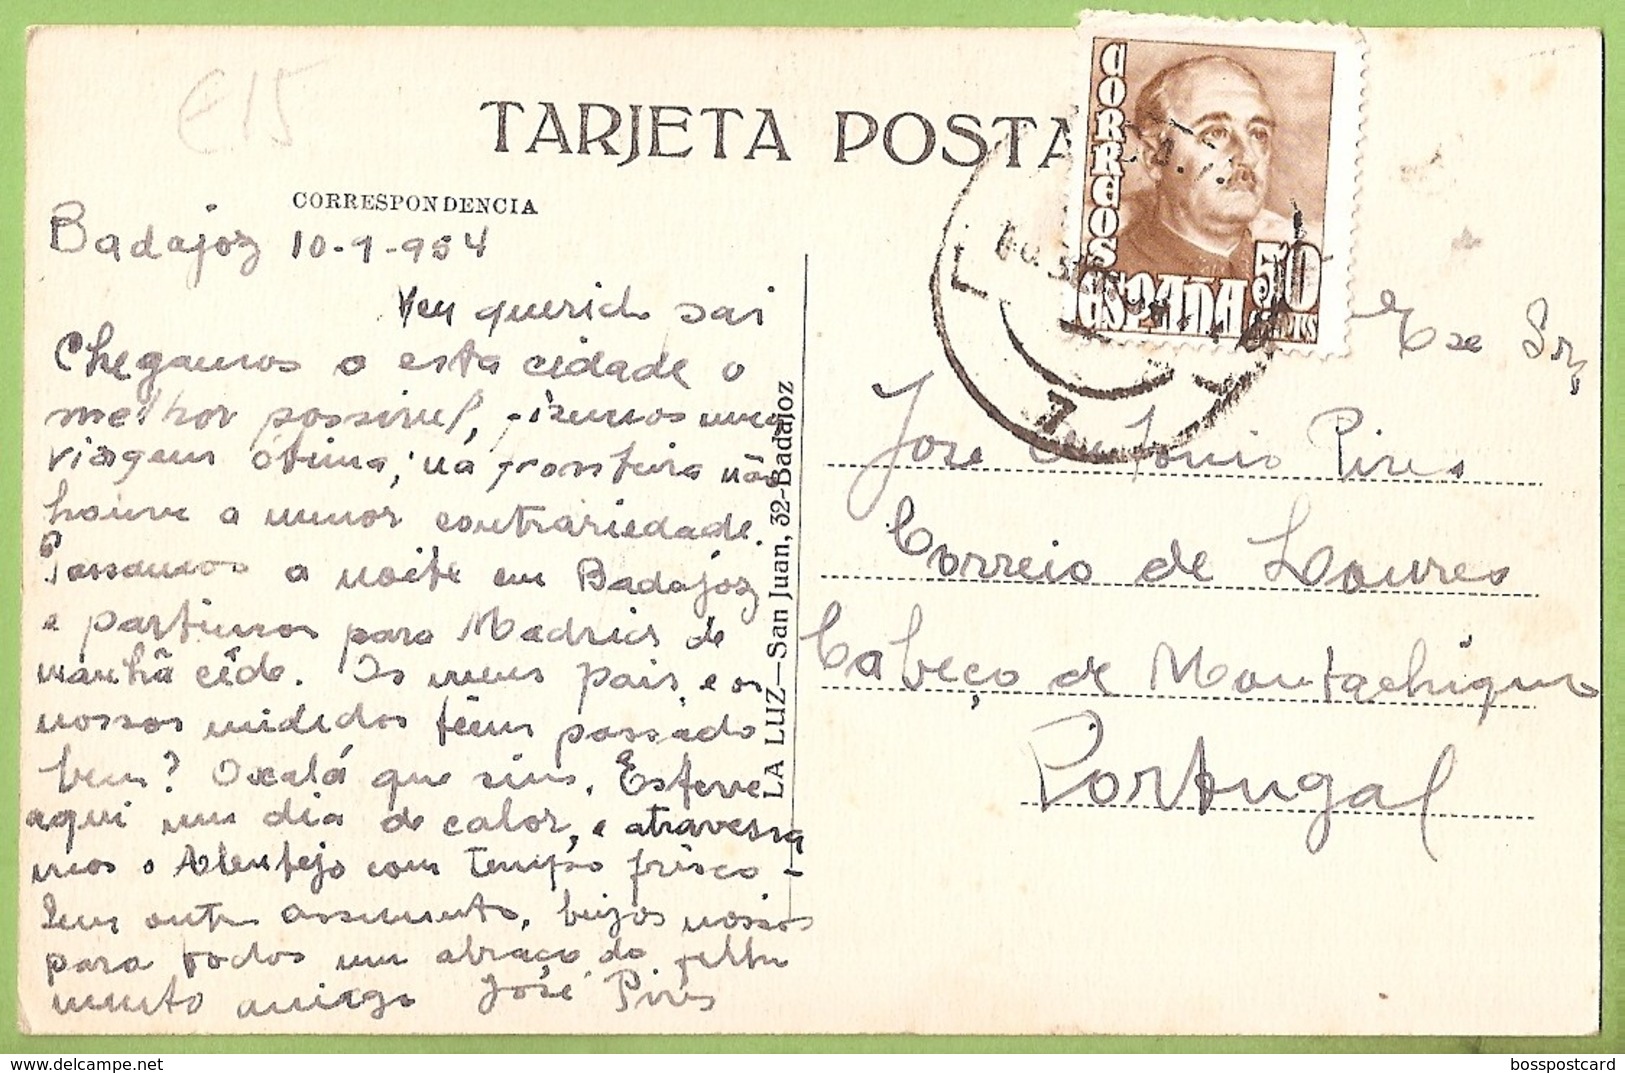 €15
TARJETA POSTA
CORRESPONDENCIA
CORREOS
ESPAÑA 50
CTS
Badajoz 10-9-954
Meu querido pai
Chegamos a esta cidade o
melhor possivel, fizemos uma
viagem ótima, na fronteira não
houve a menor contrariedade.
Passamos a noite em Badajoz
e partimos para Madrid de
manhã cêdo. Os meus pais e os
nossos miúdos têem passado
bem? Oxalá que sim. Esteve
aqui um dia de calor, e atravessa
mos o Alentejo com tempo frisco -
Sem outro assunto, beijos nossos
para todos um abraço do filho
muito amigo José Pires
LA LUZ.—San Juan, 32-Badajoz
Exe Sr.
José Antonio Pires
Correio de Loures
Cabeço de Montachique
Portugal
bosspostcard